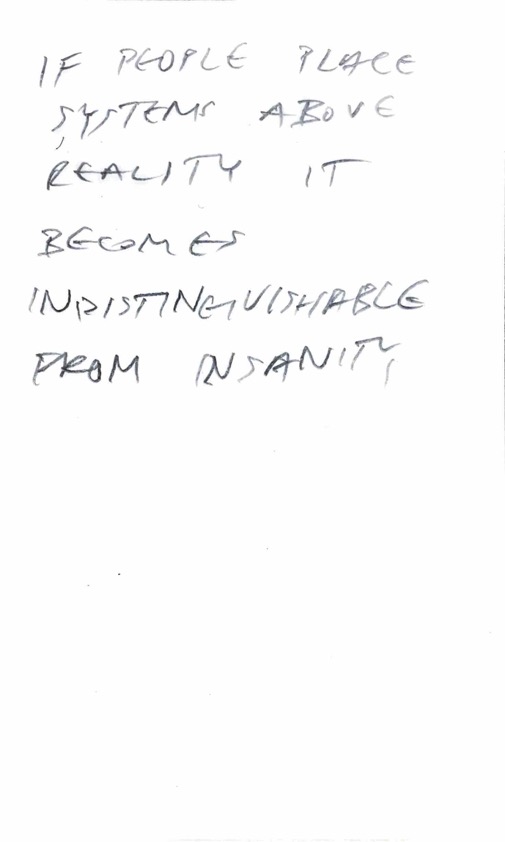 IF PEOPLE PLACE
SYSTEMS ABOVE
REALITY IT
BECOMES
INDISTINGUISHABLE
FROM INSANITY